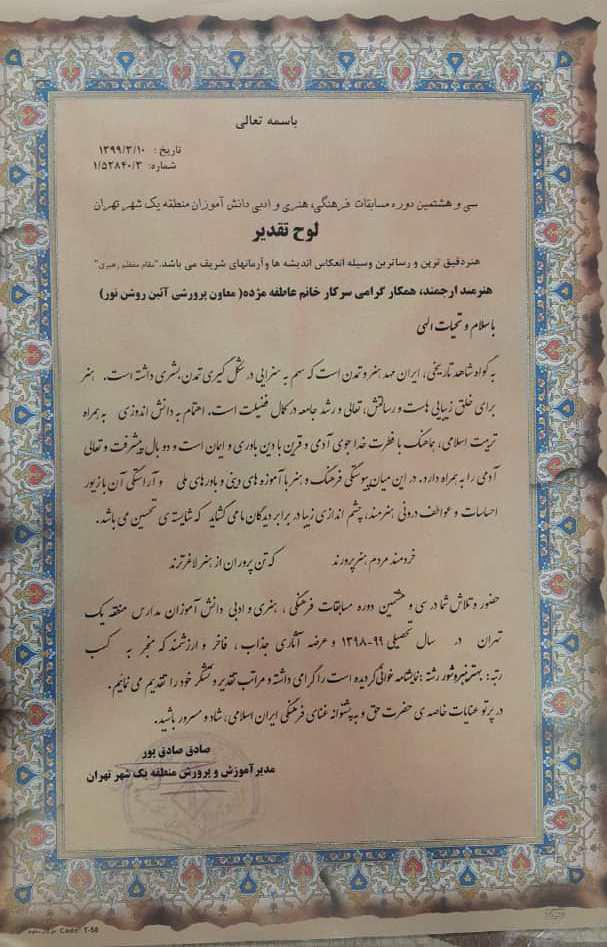 باسمه تعالی
تاریخ: ۱۳۹۹/۳/۱۰
شماره: ۱/۵۲۸۴۰/۳
سی و هشتمین دوره مسابقات فرهنگی، هنری و ادبی دانش آموزان منطقه یک شهر تهران
لوح تقدیر
هنر دقیق ترین و رساترین وسیله انعکاس اندیشه ها و آرمانهای شریف می باشد. "مقام معظم رهبری"
هنرمند ارجمند، همکار گرامی سرکار خانم عاطفه مژده( معاون پرورشی آئین روشن نور)
با سلام و تحیات الهی
به گواه شاهد تاریخی، ایران مهد هنر و تمدن است که سهم به سزایی در شکل گیری تمدن بشری داشته است. هنر
برای خلق زیبایی هاست و رسالتش، تعالی و رشد جامعه در کمال فضیلت است. اهتمام به دانش اندوزی به همراه
تربیت اسلامی، هماهنگ با فطرت خدا جوی آدمی و قرین با دین باوری و ایمان است و دو بال پیشرفت و تعالی
آدمی را به همراه دارد. در این میان پیوستگی فرهنگ و هنر با آموزه های دینی و باورهای ملی و آراستگی آن با زیور
احساسات و عواطف درونی هنرمند، چشم اندازی زیبا در برابر دیدگان ما می گشاید که شایسته ی تحسین می باشد.
خردمند مردم هنر پرورند که تن پروران از هنر لاغرترند
حضور و تلاش شما در سی و هشتمین دوره مسابقات فرهنگی ، هنری و ادبی دانش آموزان مدارس منطقه یک
تهران در سال تحصیلی ۹۹-۱۳۹۸ و عرضه آثاری جذاب ، فاخر و ارزشمند که منجر به کسب
رتبه: بهترنمیره‌شور رشته :نمایشنامه خوانی گردیده است را گرامی داشته و مراتب تقدیر و تشکر خود را تقدیم می نمائیم.
در پرتو عنایات خاصه ی حضرت حق و به پشتوانه غنای فرهنگی ایران اسلامی، شاد و مسرور باشید.
صادق صادق پور
مدیر آموزش و پرورش منطقه یک شهر تهران
Code: T-58